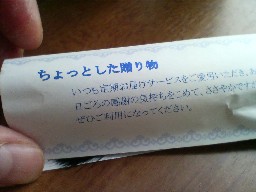 ちょっとした贈り物
いつも定期お届けサービスをご愛用いただき、あ
日ごろの感謝の気持ちをこめて、ささやかですが
ぜひご利用になってください。